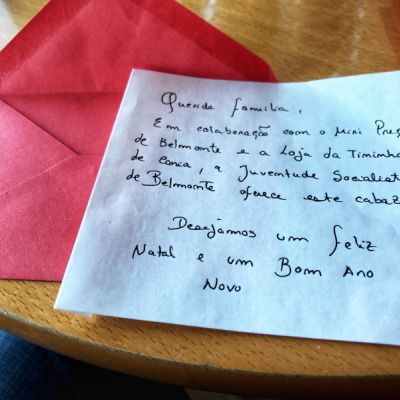 Querida família,
Em colaboração com o Mini Preç
de Belmonte e a Loja da Timinha
de Caria, a Juventude Socialist
de Belmonte oferece este cabaz
Desejamos um feliz
Natal e um Bom Ano
Novo